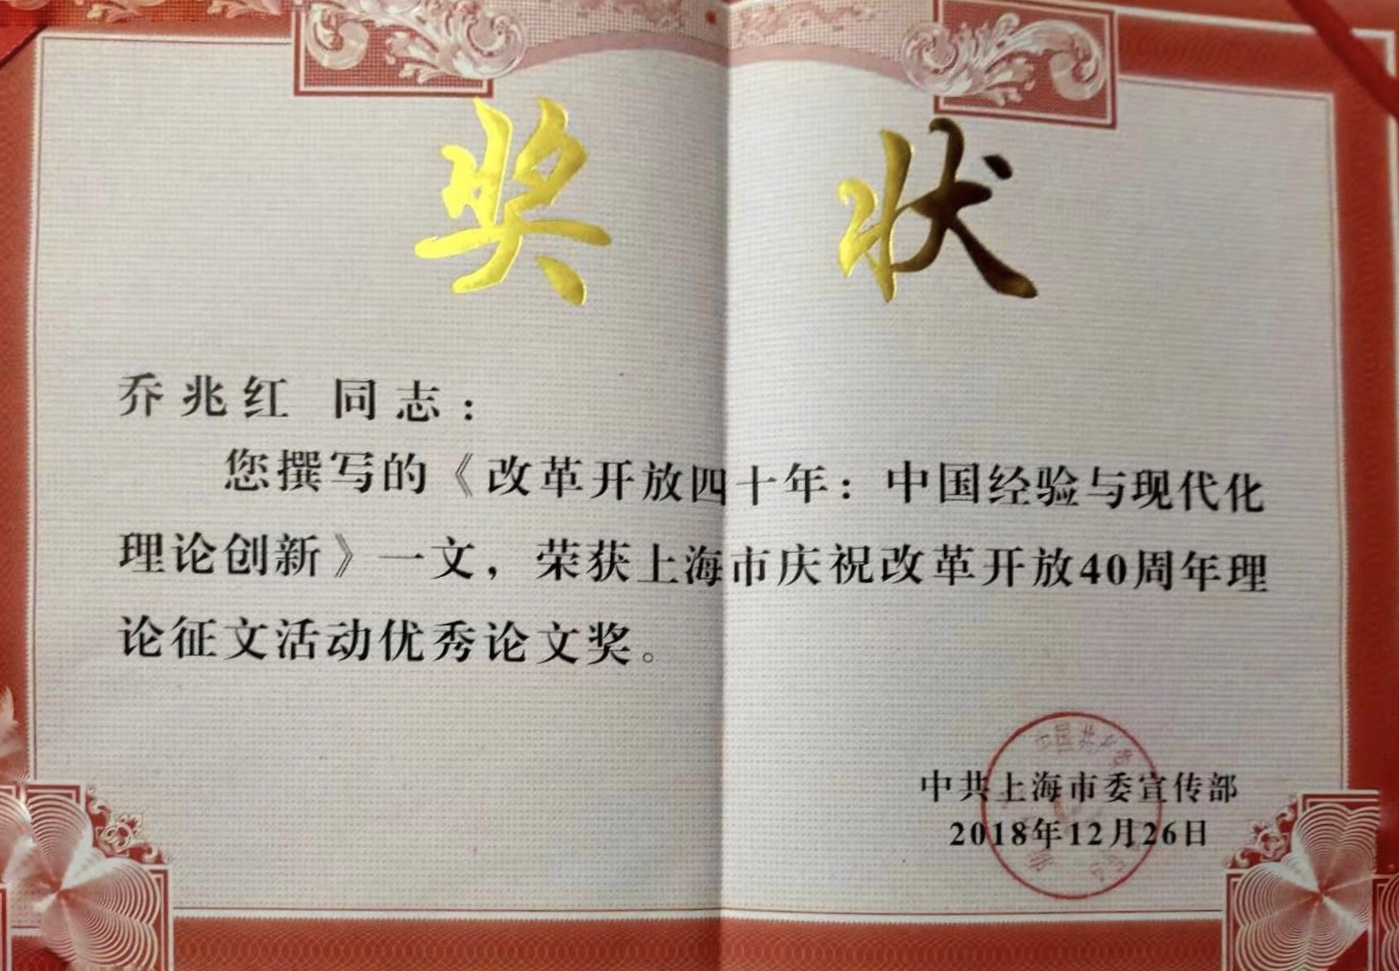 奖状
乔兆红 同志：
您撰写的《改革开放四十年：中国经验与现代化
理论创新》一文，荣获上海市庆祝改革开放40周年理
论征文活动优秀论文奖。
中国共产党
中共上海市委宣传部
2018年12月26日